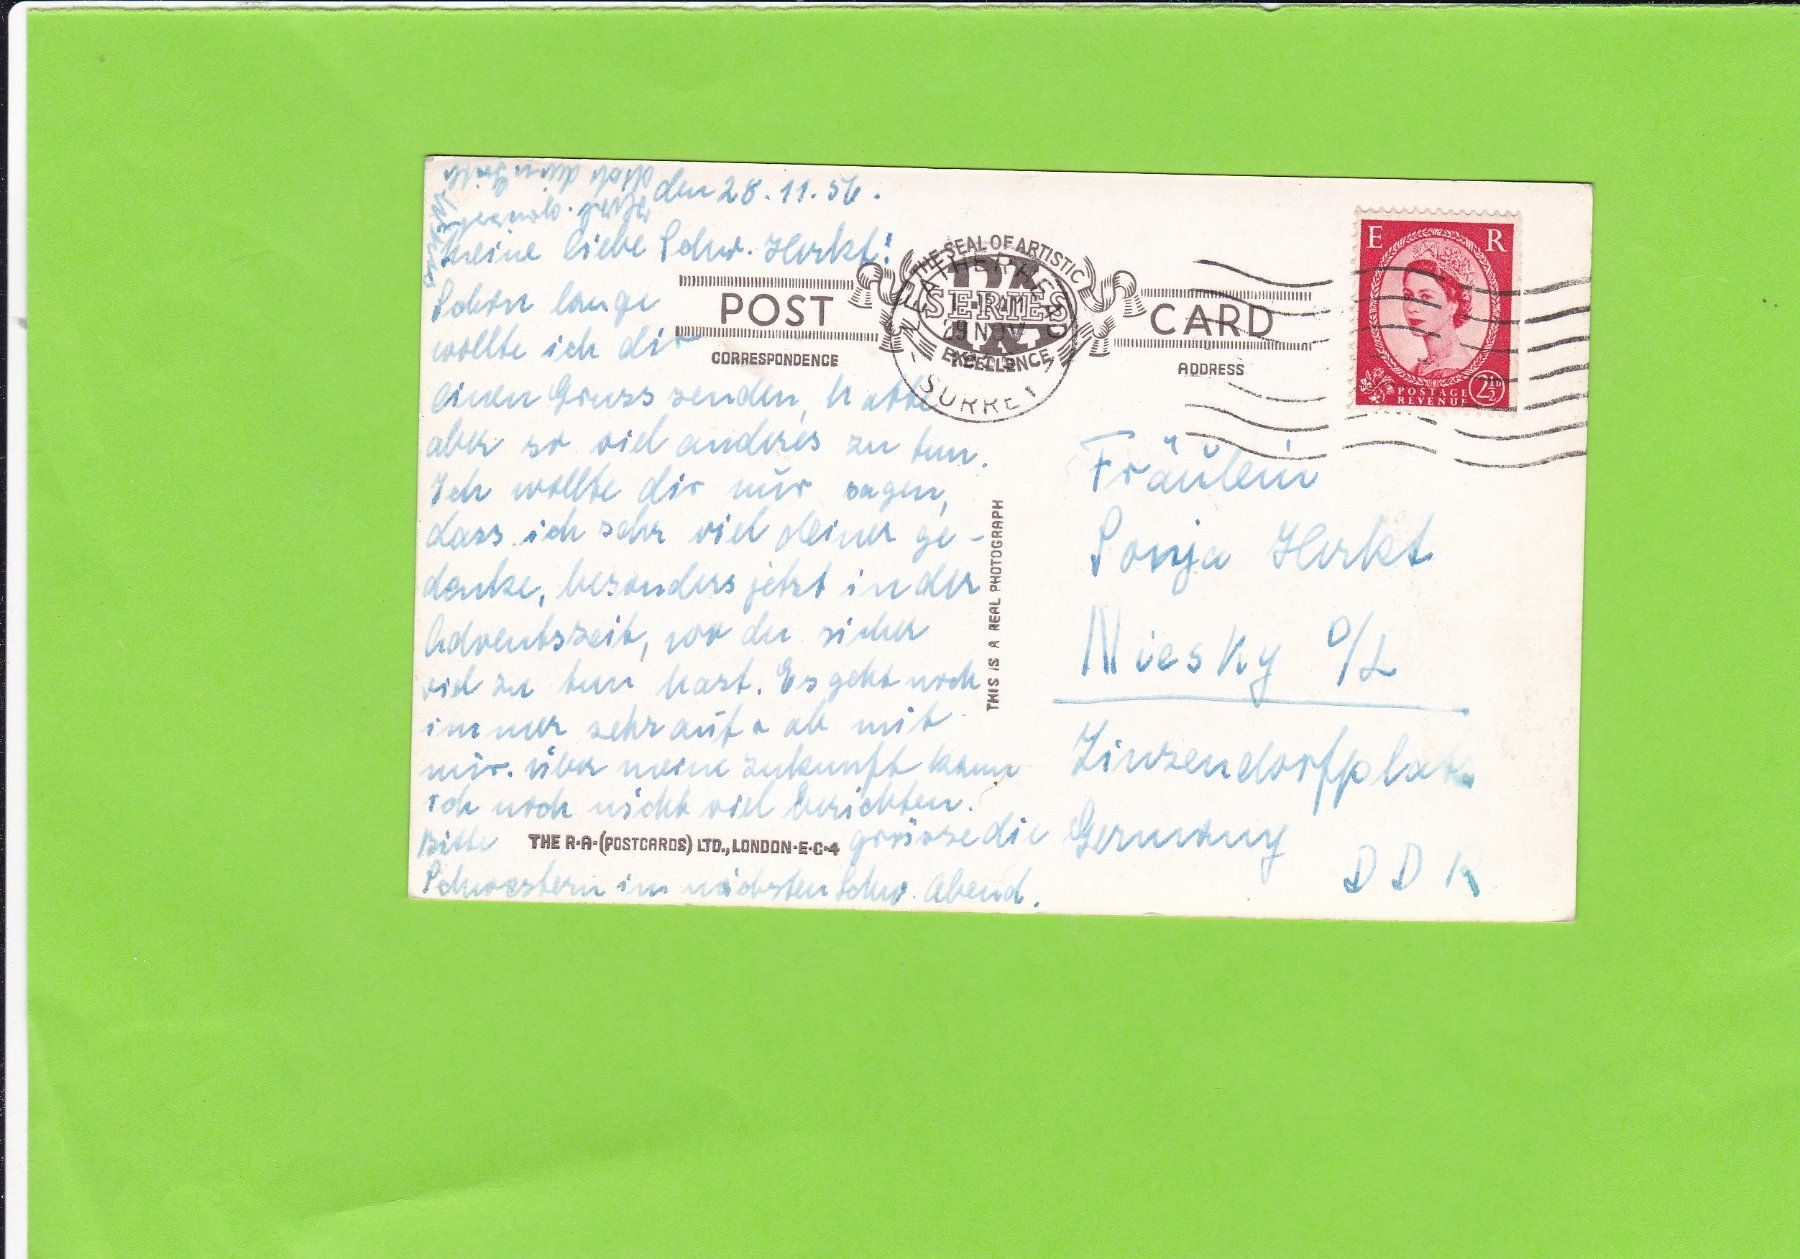 den 28.11.56.
Meine liebe Schw. Herkt!
Schon lange
wollte ich dir
einen Gruss senden, hatte
aber so viel anderes zu tun.
Ich wollte dir nur sagen,
dass ich sehr viel deiner ge-
denke, besonders jetzt in der
Adventszeit, wo du sicher
viel zu tun hast. Es geht noch
immer sehr auf + ab mit
mir. über meine Zukunft kann
ich noch nicht viel berichten.
Bitte grüsse die
Schwestern im nächsten Schw. Abend.
THE R·A·(POSTCARDS) LTD., LONDON·E·C·4
POST CARD
CORRESPONDENCE
ADDRESS
THE SEAL OF ARTISTIC
SERIES
EXCELLENCE
LEATHERHEAD
29 NOV
SURREY
THIS IS A REAL PHOTOGRAPH
E R
POSTAGE
REVENUE
2½D
Fräulein
Sonja Herkt
Niesky O/L
Zinzendorfplatz
Germany
DDR